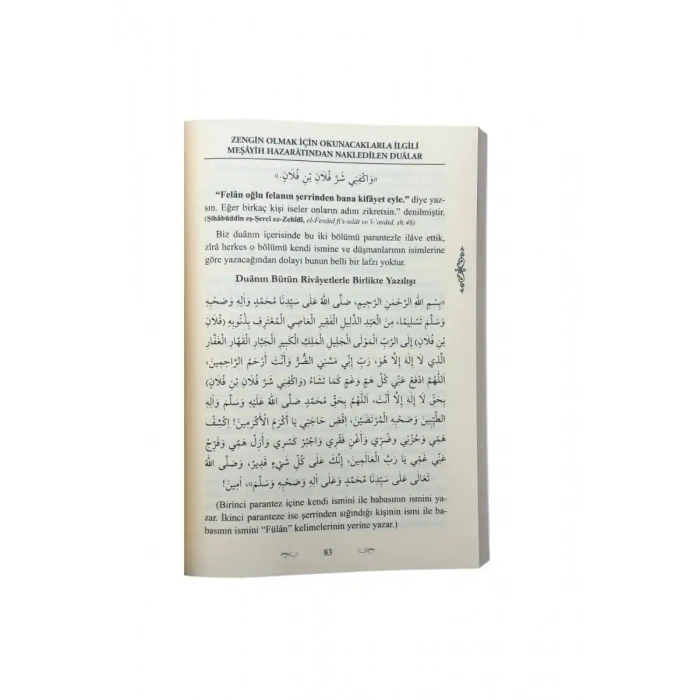 ZENGİN OLMAK İÇİN OKUNACAKLARLA İLGİLİ
MEŞÂYİH HAZARÂTINDAN NAKLEDİLEN DUÂLAR
«وَاكْفِنِي شَرَّ فُلَانِ بْنِ فُلَانٍ.»
“Felân oğlu felanın şerrinden bana kifâyet eyle.” diye yaz-
sın. Eğer birkaç kişi iseler onların adını zikretsin.” denilmiştir.
(Şihâbüddîn eş-Şercî ez-Zebîdî, el-Fevâid fi's-salât ve 'l-'avâid, sh:46)
Biz duanın içerisinde bu iki bölümü parantezle ilâve ettik,
zîrâ herkes o bölümü kendi ismine ve düşmanlarının isimlerine
göre yazacağından dolayı bunun belli bir lafzı yoktur.
Duânın Bütün Rivâyetlerle Birlikte Yazılışı
«بِسْمِ اللهِ الرَّحْمٰنِ الرَّحِيمِ، صَلَّى اللهُ عَلَى سَيِّدِنَا مُحَمَّدٍ وَآلِهِ وَصَحْبِهِ
وَسَلَّمَ تَسْلِيمًا، مِنَ الْعَبْدِ الذَّلِيلِ الْفَقِيرِ الْعَاصِي الْمُعْتَرِفِ بِذُنُوبِهِ (فُلَانِ
بْنِ فُلَانٍ) إِلَى الرَّبِّ الْمَوْلَى الْجَلِيلِ الْمَلِكِ الْكَبِيرِ الْجَبَّارِ الْقَهَّارِ الْغَفَّارِ
الَّذِي لَا إِلٰهَ إِلَّا هُوَ، رَبِّ إِنِّي مَسَّنِيَ الضُّرُّ وَأَنْتَ أَرْحَمُ الرَّاحِمِينَ،
اَللّٰهُمَّ ادْفَعْ عَنِّي كُلَّ هَمٍّ وَغَمٍّ كَمَا تَشَاءُ (وَاكْفِنِي شَرَّ فُلَانِ بْنِ فُلَانٍ)
بِحَقِّ لَا إِلٰهَ إِلَّا أَنْتَ، اَللّٰهُمَّ بِحَقِّ مُحَمَّدٍ صَلَّى اللهُ عَلَيْهِ وَسَلَّمَ وَآلِهِ
الطَّيِّبِينَ وَصَحْبِهِ الْمُرْتَضَيْنَ، اِقْضِ حَاجَتِي يَا أَكْرَمَ الْأَكْرَمِينَ! اِكْشِفْ
هَمِّي وَحُزْنِي وَضُرِّي وَأَغْنِ فَقْرِي وَاجْبُرْ كَسْرِي وَأَزِلْ هَمِّي وَفَرِّجْ
عَنِّي غَمِّي يَا رَبَّ الْعَالَمِينَ، إِنَّكَ عَلَى كُلِّ شَيْءٍ قَدِيرٌ، وَصَلَّى اللهُ
تَعَالَى عَلَى سَيِّدِنَا مُحَمَّدٍ وَعَلَى آلِهِ وَصَحْبِهِ وَسَلَّمَ»، اٰمِينَ!
(Birinci parantez içine kendi ismini ile babasının ismini ya-
zar. İkinci paranteze ise şerrinden sığındığı kişinin ismi ile ba-
basının ismini “Fülân” kelimelerinin yerine yazar.)
83